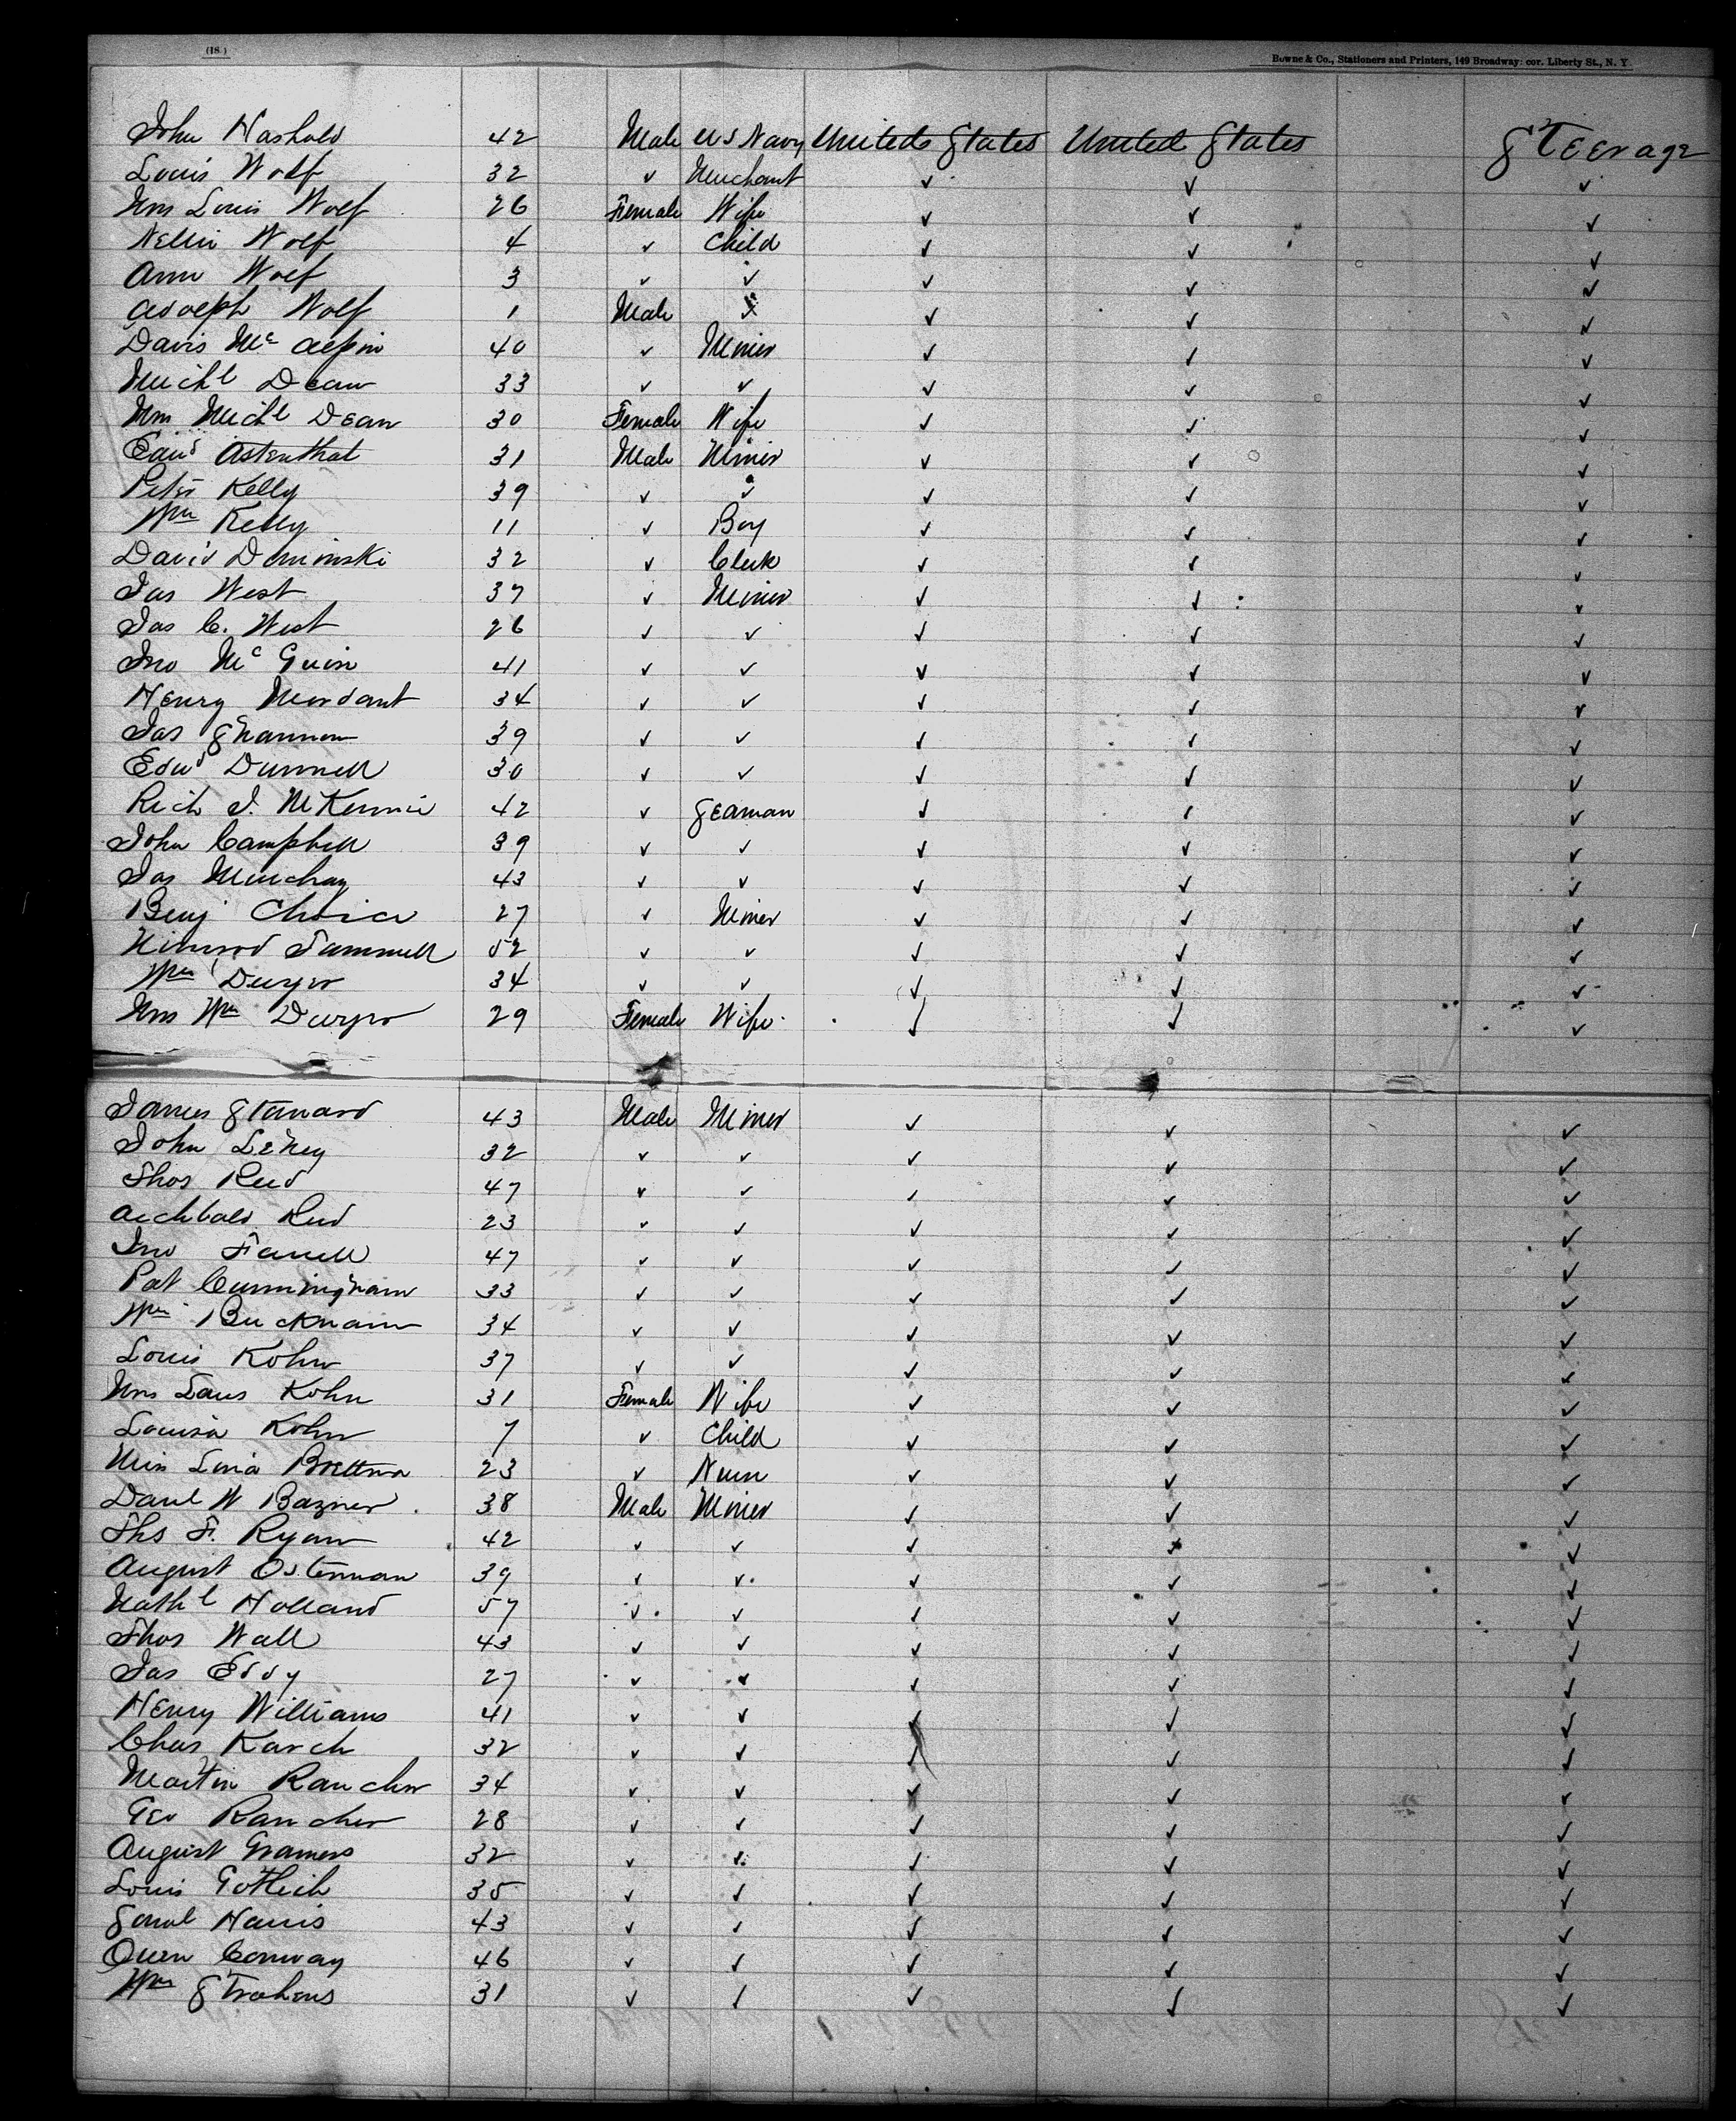 (18.)
Bowne & Co., Stationers and Printers, 149 Broadway: cor. Liberty St., N. Y
John Hashold 42 Male U S Navy United States United States Steerage
Louis Wolf 32 ✓ Merchant ✓ ✓ ✓
Mrs Louis Wolf 26 Female Wife ✓ ✓ ✓
Nellie Wolf 4 ✓ Child ✓ ✓ ✓
Ann Wolf 3 ✓ ✓ ✓ ✓ ✓
Adolph Wolf 1 Male ✓ ✓ ✓ ✓
Davis Mc Alpin 40 ✓ Miner ✓ ✓ ✓
Michl Dean 33 ✓ ✓ ✓ ✓ ✓
Mrs Michl Dean 30 Female Wife ✓ ✓ ✓
Edwd Astenthal 31 Male Miner ✓ ✓ ✓
Peter Kelly 39 ✓ ✓ ✓ ✓ ✓
Wm Kelly 11 ✓ Boy ✓ ✓ ✓
David Deminski 32 ✓ Clerk ✓ ✓ ✓
Jas West 37 ✓ Miner ✓ ✓ ✓
Jas C. West 26 ✓ ✓ ✓ ✓ ✓
Jno Mc Guin 41 ✓ ✓ ✓ ✓ ✓
Henry Mordant 34 ✓ ✓ ✓ ✓ ✓
Jas Shannon 39 ✓ ✓ ✓ ✓ ✓
Edwd Dunnell 30 ✓ ✓ ✓ ✓ ✓
Rich J. McKennie 42 ✓ Seaman ✓ ✓ ✓
John Campbell 39 ✓ ✓ ✓ ✓ ✓
Jas 43 ✓ ✓ ✓ ✓ ✓
Benj Choice 27 ✓ Miner ✓ ✓ ✓
Nimrod Tammell 52 ✓ ✓ ✓ ✓ ✓
Wm Dwyer 34 ✓ ✓ ✓ ✓ ✓
Mrs Wm Dwyer 29 Female Wife ✓ ✓ ✓
James Stanard 43 Male Miner ✓ ✓ ✓
John Lehey 32 ✓ ✓ ✓ ✓ ✓
Thos Reid 47 ✓ ✓ ✓ ✓ ✓
Archbald Reid 23 ✓ ✓ ✓ ✓ ✓
Jno Farrell 47 ✓ ✓ ✓ ✓ ✓
Pat Cunningham 33 ✓ ✓ ✓ ✓ ✓
Wm Bucknam 34 ✓ ✓ ✓ ✓ ✓
Louis Kohn 37 ✓ ✓ ✓ ✓ ✓
Mrs Louis Kohn 31 Female Wife ✓ ✓ ✓
Louisa Kohn 7 ✓ Child ✓ ✓ ✓
Miss Lina 23 ✓ Nurse ✓ ✓ ✓
Danl W Bazner 38 Male Miner ✓ ✓ ✓
Ths F. Ryan 42 ✓ ✓ ✓ ✓ ✓
August Osterman 39 ✓ ✓ ✓ ✓ ✓
Nathl Holland 57 ✓ ✓ ✓ ✓ ✓
Thos Wall 43 ✓ ✓ ✓ ✓ ✓
Jas Eddy 27 ✓ ✓ ✓ ✓ ✓
Henry Williams 41 ✓ ✓ ✓ ✓ ✓
Chas Karch 32 ✓ ✓ ✓ ✓ ✓
Martin Rancher 34 ✓ ✓ ✓ ✓ ✓
Geo Rancher 28 ✓ ✓ ✓ ✓ ✓
August Gramers 32 ✓ ✓ ✓ ✓ ✓
Louis Gotleib 35 ✓ ✓ ✓ ✓ ✓
Saml Harris 43 ✓ ✓ ✓ ✓ ✓
Owen Conway 46 ✓ ✓ ✓ ✓ ✓
Wm Strahens 31 ✓ ✓ ✓ ✓ ✓